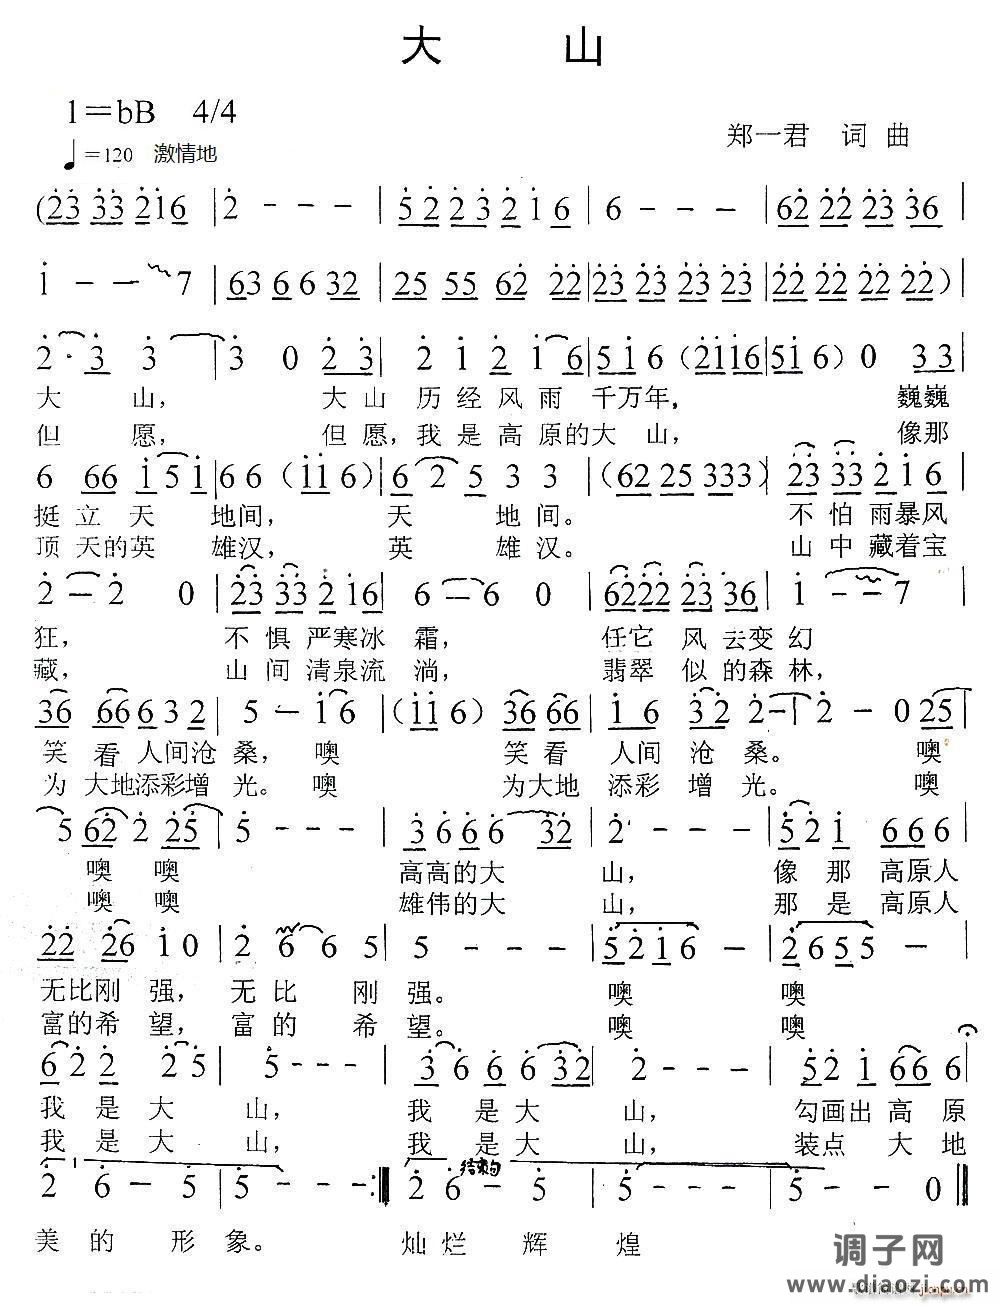 大 山
1=bB 4/4
♩=120 激情地
郑一君 词 曲
(23 33 216 | 2 - - - | 5 2 2 3 2 1 6 | 6 - - - | 62 22 23 36 |
1 - - 7 | 63 6 6 32 | 25 55 62 22 | 23 23 23 23 | 22 22 22 22 ) |
2 · 3 3 | 3 0 2 3 | 2 1 2 1 6 | 5 1 6 (2116 | 51 6) 0 3 3 |
大 山， 大 山 历 经 风 雨 千万年， 巍巍
但 愿， 但 愿，我 是 高 原的大 山， 像那
6 66 1 5 1 | 6 6 (11 6) | 6 2 5 3 3 | (62 25 333) | 23 33 2 1 6 |
挺 立 天 地间， 天 地 间。 不 怕 雨暴风
顶 天的英 雄汉， 英 雄 汉。 山 中 藏着宝
2 - 2 0 | 23 33 2 16 | 6 - 6 0 | 6222 23 36 | 1 - - 7 |
狂， 不 惧 严寒冰 霜， 任它 风 云变 幻
藏， 山 间 清泉流 淌， 翡翠 似 的森 林，
36 66 6 3 2 | 5 - 1 6 | (11 6) 36 66 | 1 6 32 2 - | 2 - 0 25 |
笑 看 人间沧 桑， 噢 笑 看 人间 沧 桑。 噢
为 大地添彩增 光。 噢 为大地 添彩 增 光。 噢
5 62 2 25 | 5 - - - | 3 6 6 6 32 | 2 - - - | 5 2 1 6 6 6 |
噢 噢 高高的大 山， 像 那 高原人
噢 噢 雄伟的大 山， 那 是 高原人
22 26 1 0 | 2 6 6 5 | 5 - - - | 5 2 1 6 | 2 6 5 5 |
无比刚 强， 无 比 刚 强。 噢 噢
富的希 望， 富 的 希 望。 噢 噢
6 2 2 2 5 | 5 - - - | 3 6 6 6 32 | 2 - - - | 5 2 1 6 6 |
我 是 大 山， 我 是 大 山， 勾画出 高 原
我 是 大 山， 我 是 大 山， 装点 大 地
2 6 - 5 | 5 - - - :‖ 结束句 2 6 - 5 | 5 - - - | 5 - - 0 ‖
美 的 形 象。 灿 烂 辉 煌
调子网
www.diaozi.com